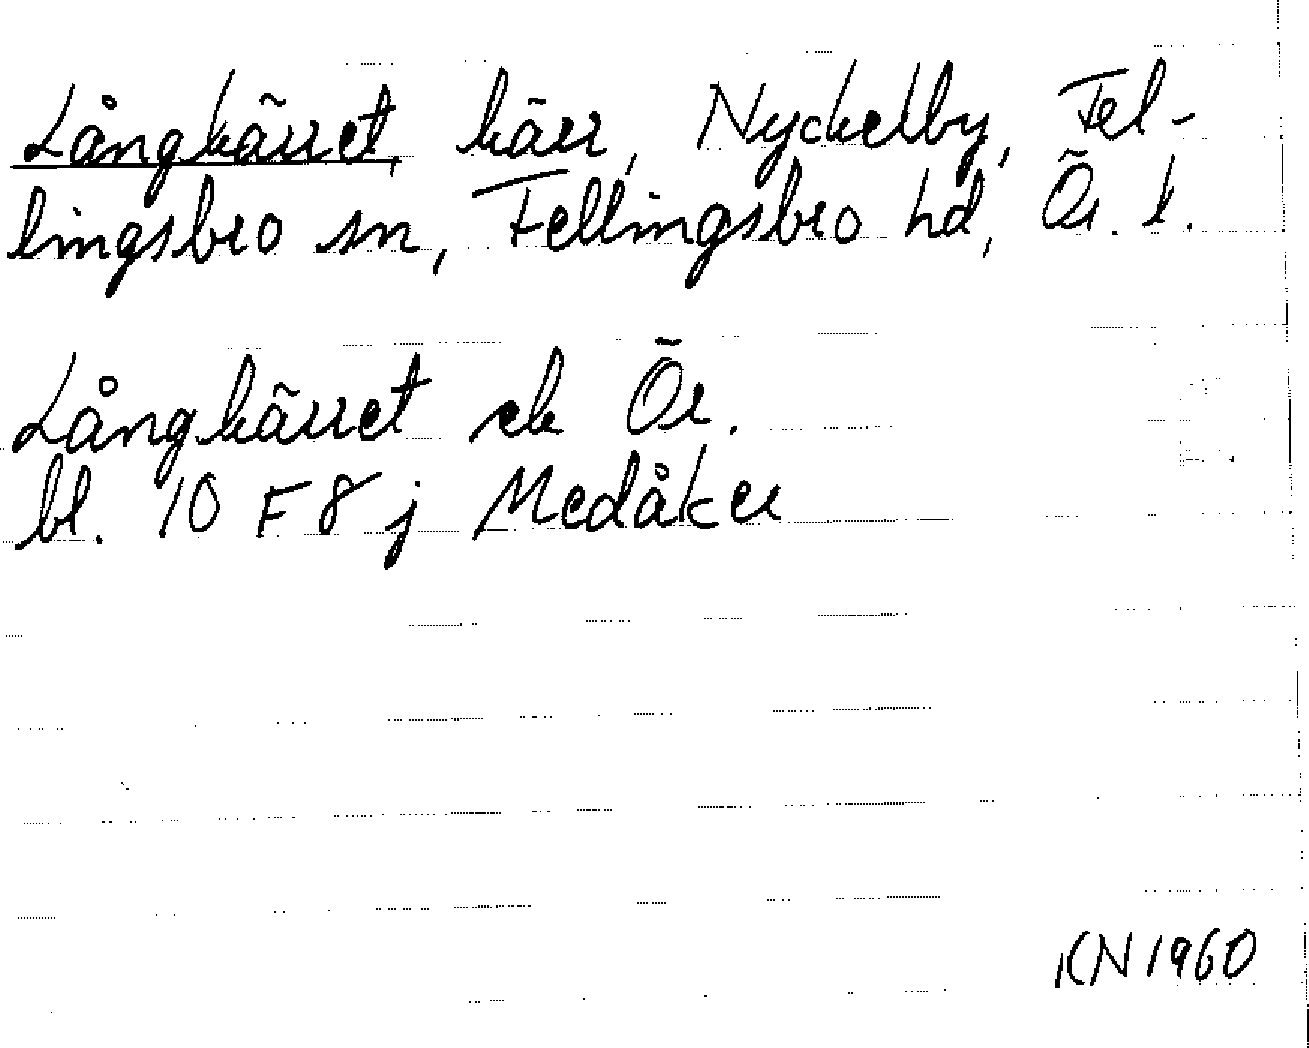 Långkärret, kärr, Nyckelby, Fel-
lingsbro sn, Fellingsbro hd, Ör. l.
Långkärret ek Ör.
bl. 10 F 8 j Medåker
KN 1960